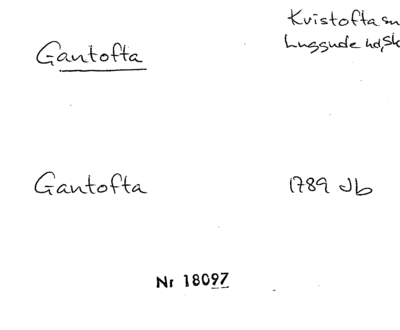 Gantofta
Kvistofta sn
Luggude hd, Sk
Gantofta
1789 Jb
Nr 18097